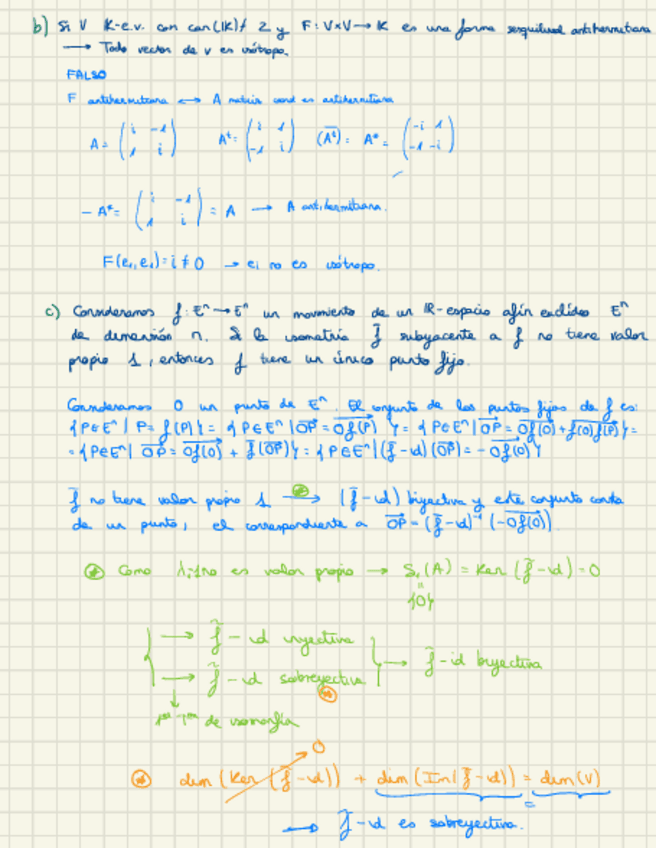 b) Si V K-e.v. con car(K)≠ 2 y F: V×V → K es una forma sesquilineal antihermitiana
→ Todo vector de V es isótropo.
FALSO
F antihermitiana ↔ A matriz coord es antihermitiana
A = (i -1; 1 i) Aᵗ = (i 1; -1 i) (Āᵗ) = A* = (-i 1; -1 -i)
-A* = (i -1; 1 i) = A → A antihermitiana.
F(e₁,e₁) = i ≠ 0 → e₁ no es isótropo.
c) Consideramos f: Eⁿ → Eⁿ un movimiento de un IR-espacio afín euclídeo Eⁿ
de dimensión n. Si la isometría f̃ subyacente a f no tiene valor
propio 1, entonces f tiene un único punto fijo.
Consideramos O un punto de Eⁿ. El conjunto de los puntos fijos de f es:
{P∈Eⁿ | P = f(P)} = {P∈Eⁿ | OP = Of(P)} = {P∈Eⁿ | OP = Of(O) + f(O)f(P)} =
= {P∈Eⁿ | OP = Of(O) + f̃(OP)} = {P∈Eⁿ | (f̃-id)(OP) = -Of(O)}
f̃ no tiene valor propio 1 → (f̃-id) biyectiva y este conjunto consta
de un punto, el correspondiente a OP = (f̃-id)⁻¹(-Of(O))
* Como λ=1 no es valor propio → S₁(A) = Ker(f̃-id) = 0
{0}
→ f̃-id inyectiva
→ f̃-id biyectiva
→ f̃-id sobreyectiva
1er Tma de isomorfía
0
* dim(Ker(f̃-id)) + dim(Im(f̃-id)) = dim(V)
=
→ f̃-id es sobreyectiva.